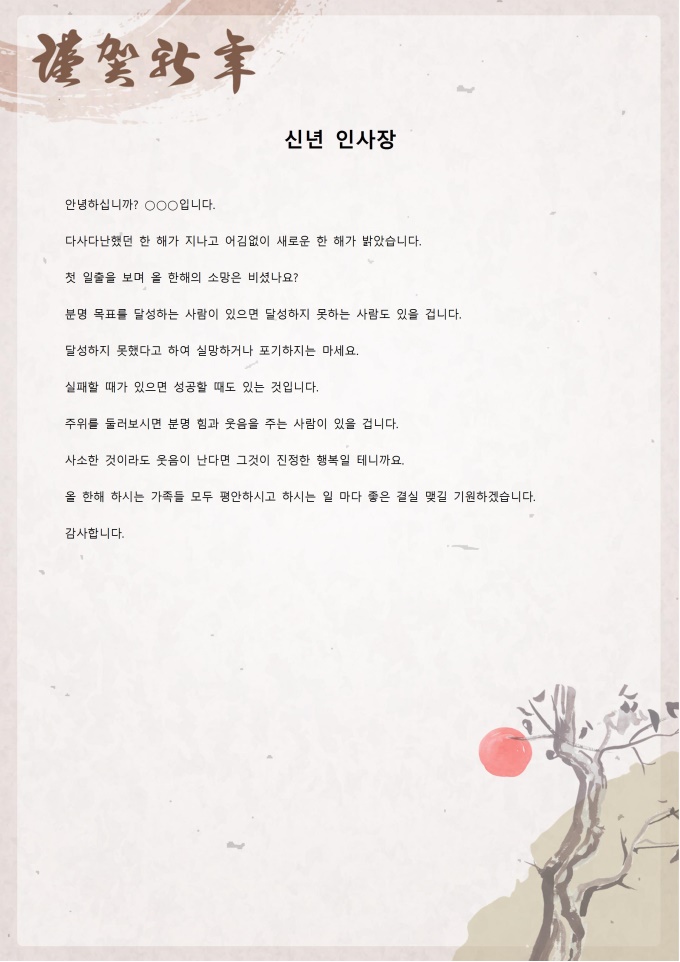 謹賀新年
신년 인사장
안녕하십니까? ○○○입니다.
다사다난했던 한 해가 지나고 어김없이 새로운 한 해가 밝았습니다.
첫 일출을 보며 올 한해의 소망은 비셨나요?
분명 목표를 달성하는 사람이 있으면 달성하지 못하는 사람도 있을 겁니다.
달성하지 못했다고 하여 실망하거나 포기하지는 마세요.
실패할 때가 있으면 성공할 때도 있는 것입니다.
주위를 둘러보시면 분명 힘과 웃음을 주는 사람이 있을 겁니다.
사소한 것이라도 웃음이 난다면 그것이 진정한 행복일 테니까요.
올 한해 하시는 가족들 모두 평안하시고 하시는 일 마다 좋은 결실 맺길 기원하겠습니다.
감사합니다.